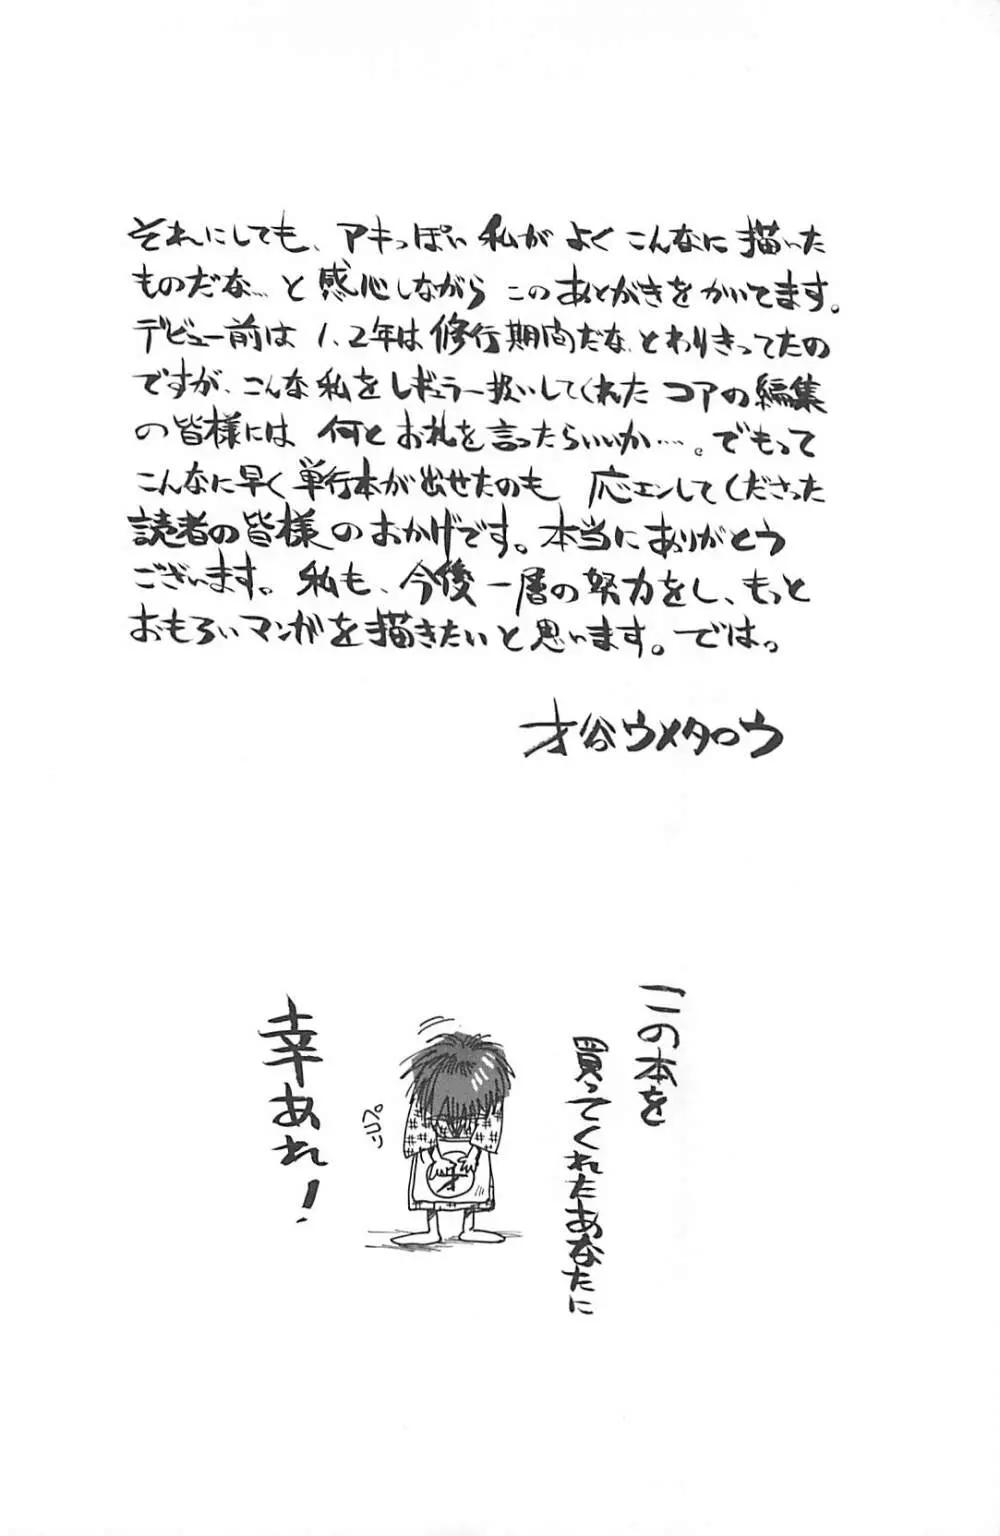 それにしても、アキっぽい私がよくこんなに描いた
ものだな…と感心しながらこのあとがきをかいてます。
デビュー前は1、2年は修行期間だな、とわりきってたの
ですが、こんな私をレギュラー扱いしてくれたコアの編集
の皆様には何とお礼を言ったらいいか…。でもって
こんなに早く単行本が出せたのも応エンしてくださった
読者の皆様のおかげです。本当にありがとう
ございます。私も、今後一層の努力をし、もっと
おもろいマンガを描きたいと思います。では。
才谷ウメタロウ
この本を
買ってくれたあなたに
幸あれ!
ペコリ
才